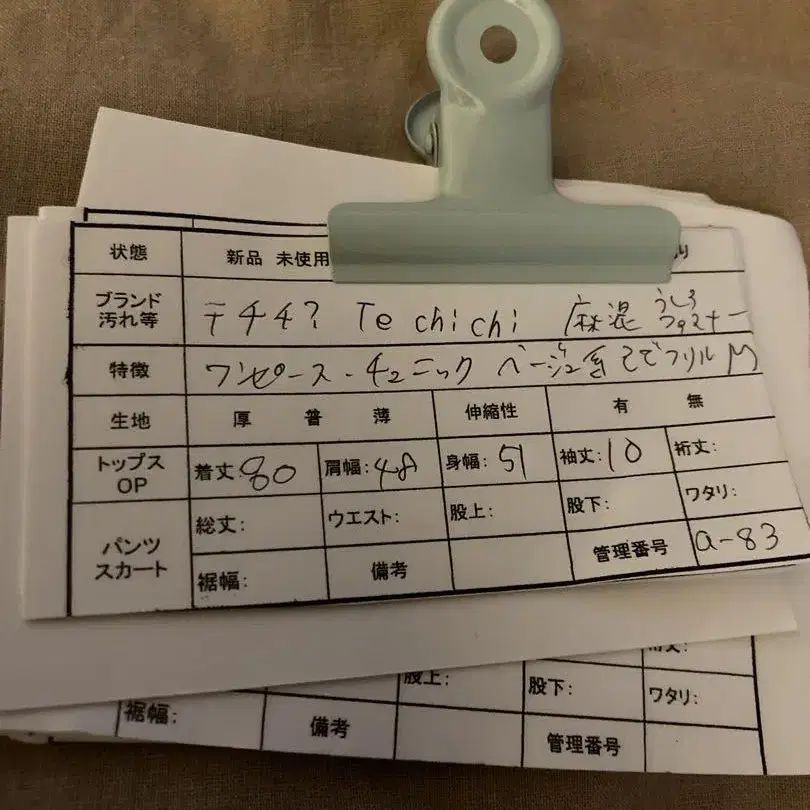 状態 新品 未使用
ブランド 汚れ等 テチチ? Te chichi 麻混 うしろ ファスナー
特徴 ワンピース・チュニック ベージュ系 そでフリル M
生地 厚 普 薄 伸縮性 有 無
トップス OP 着丈:80 肩幅:48 身幅:51 袖丈:10 裄丈:
パンツ スカート 総丈: ウエスト: 股上: 股下: ワタリ:
裾幅: 備考 管理番号 a-83
股上: 股下: ワタリ:
裾幅: 備考 管理番号